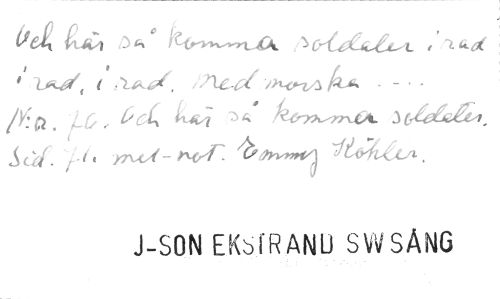 Och här så kommer soldater i rad
i rad, i rad. med morska ....
N:r. 70. Och här så kommer soldater.
Sid. 71. mel-not. Emmy Köhler.
J-SON EKSTRAND SWSÅNG